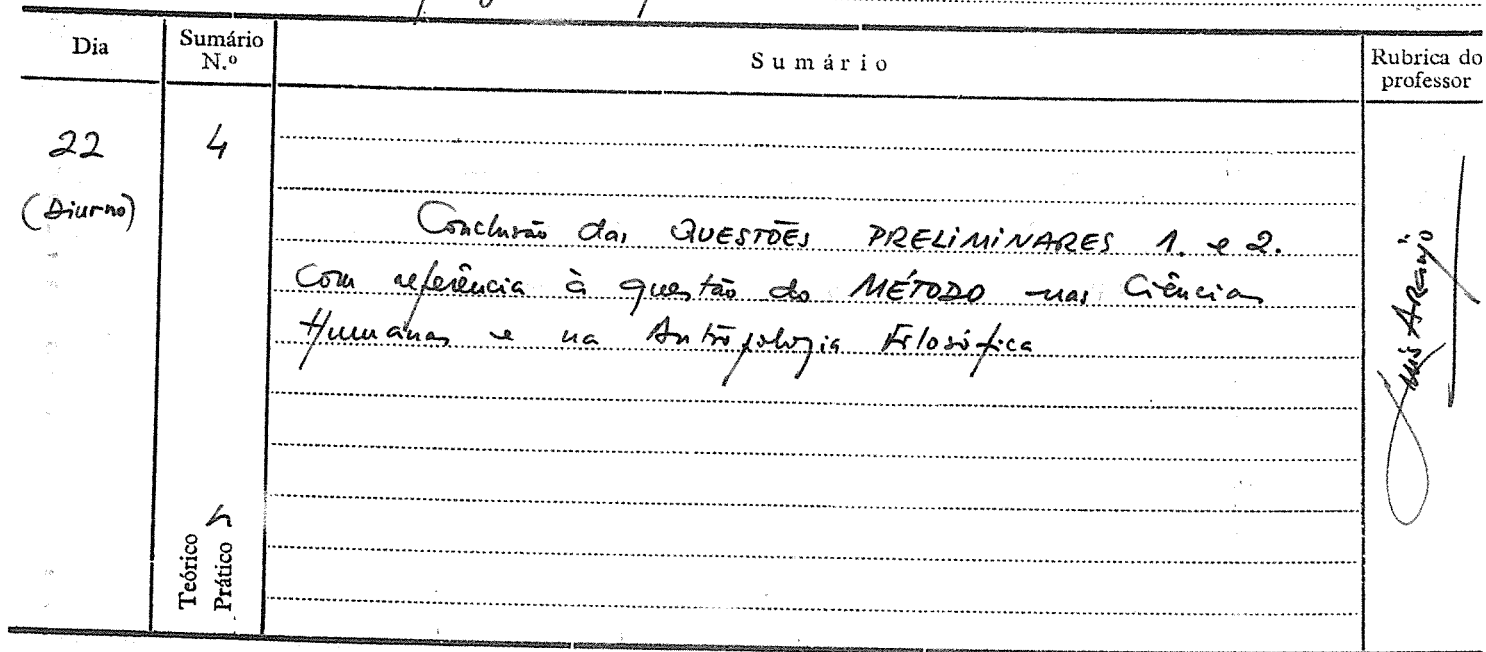 Dia
Sumário N.º
Sumário
Rubrica do professor
22
4
(Diurno)
Conclusão das QUESTÕES PRELIMINARES 1. e 2.
com referência à questão do MÉTODO nas Ciências
Humanas e na Antropologia Filosófica
Luís Araújo
Teórico
Prático